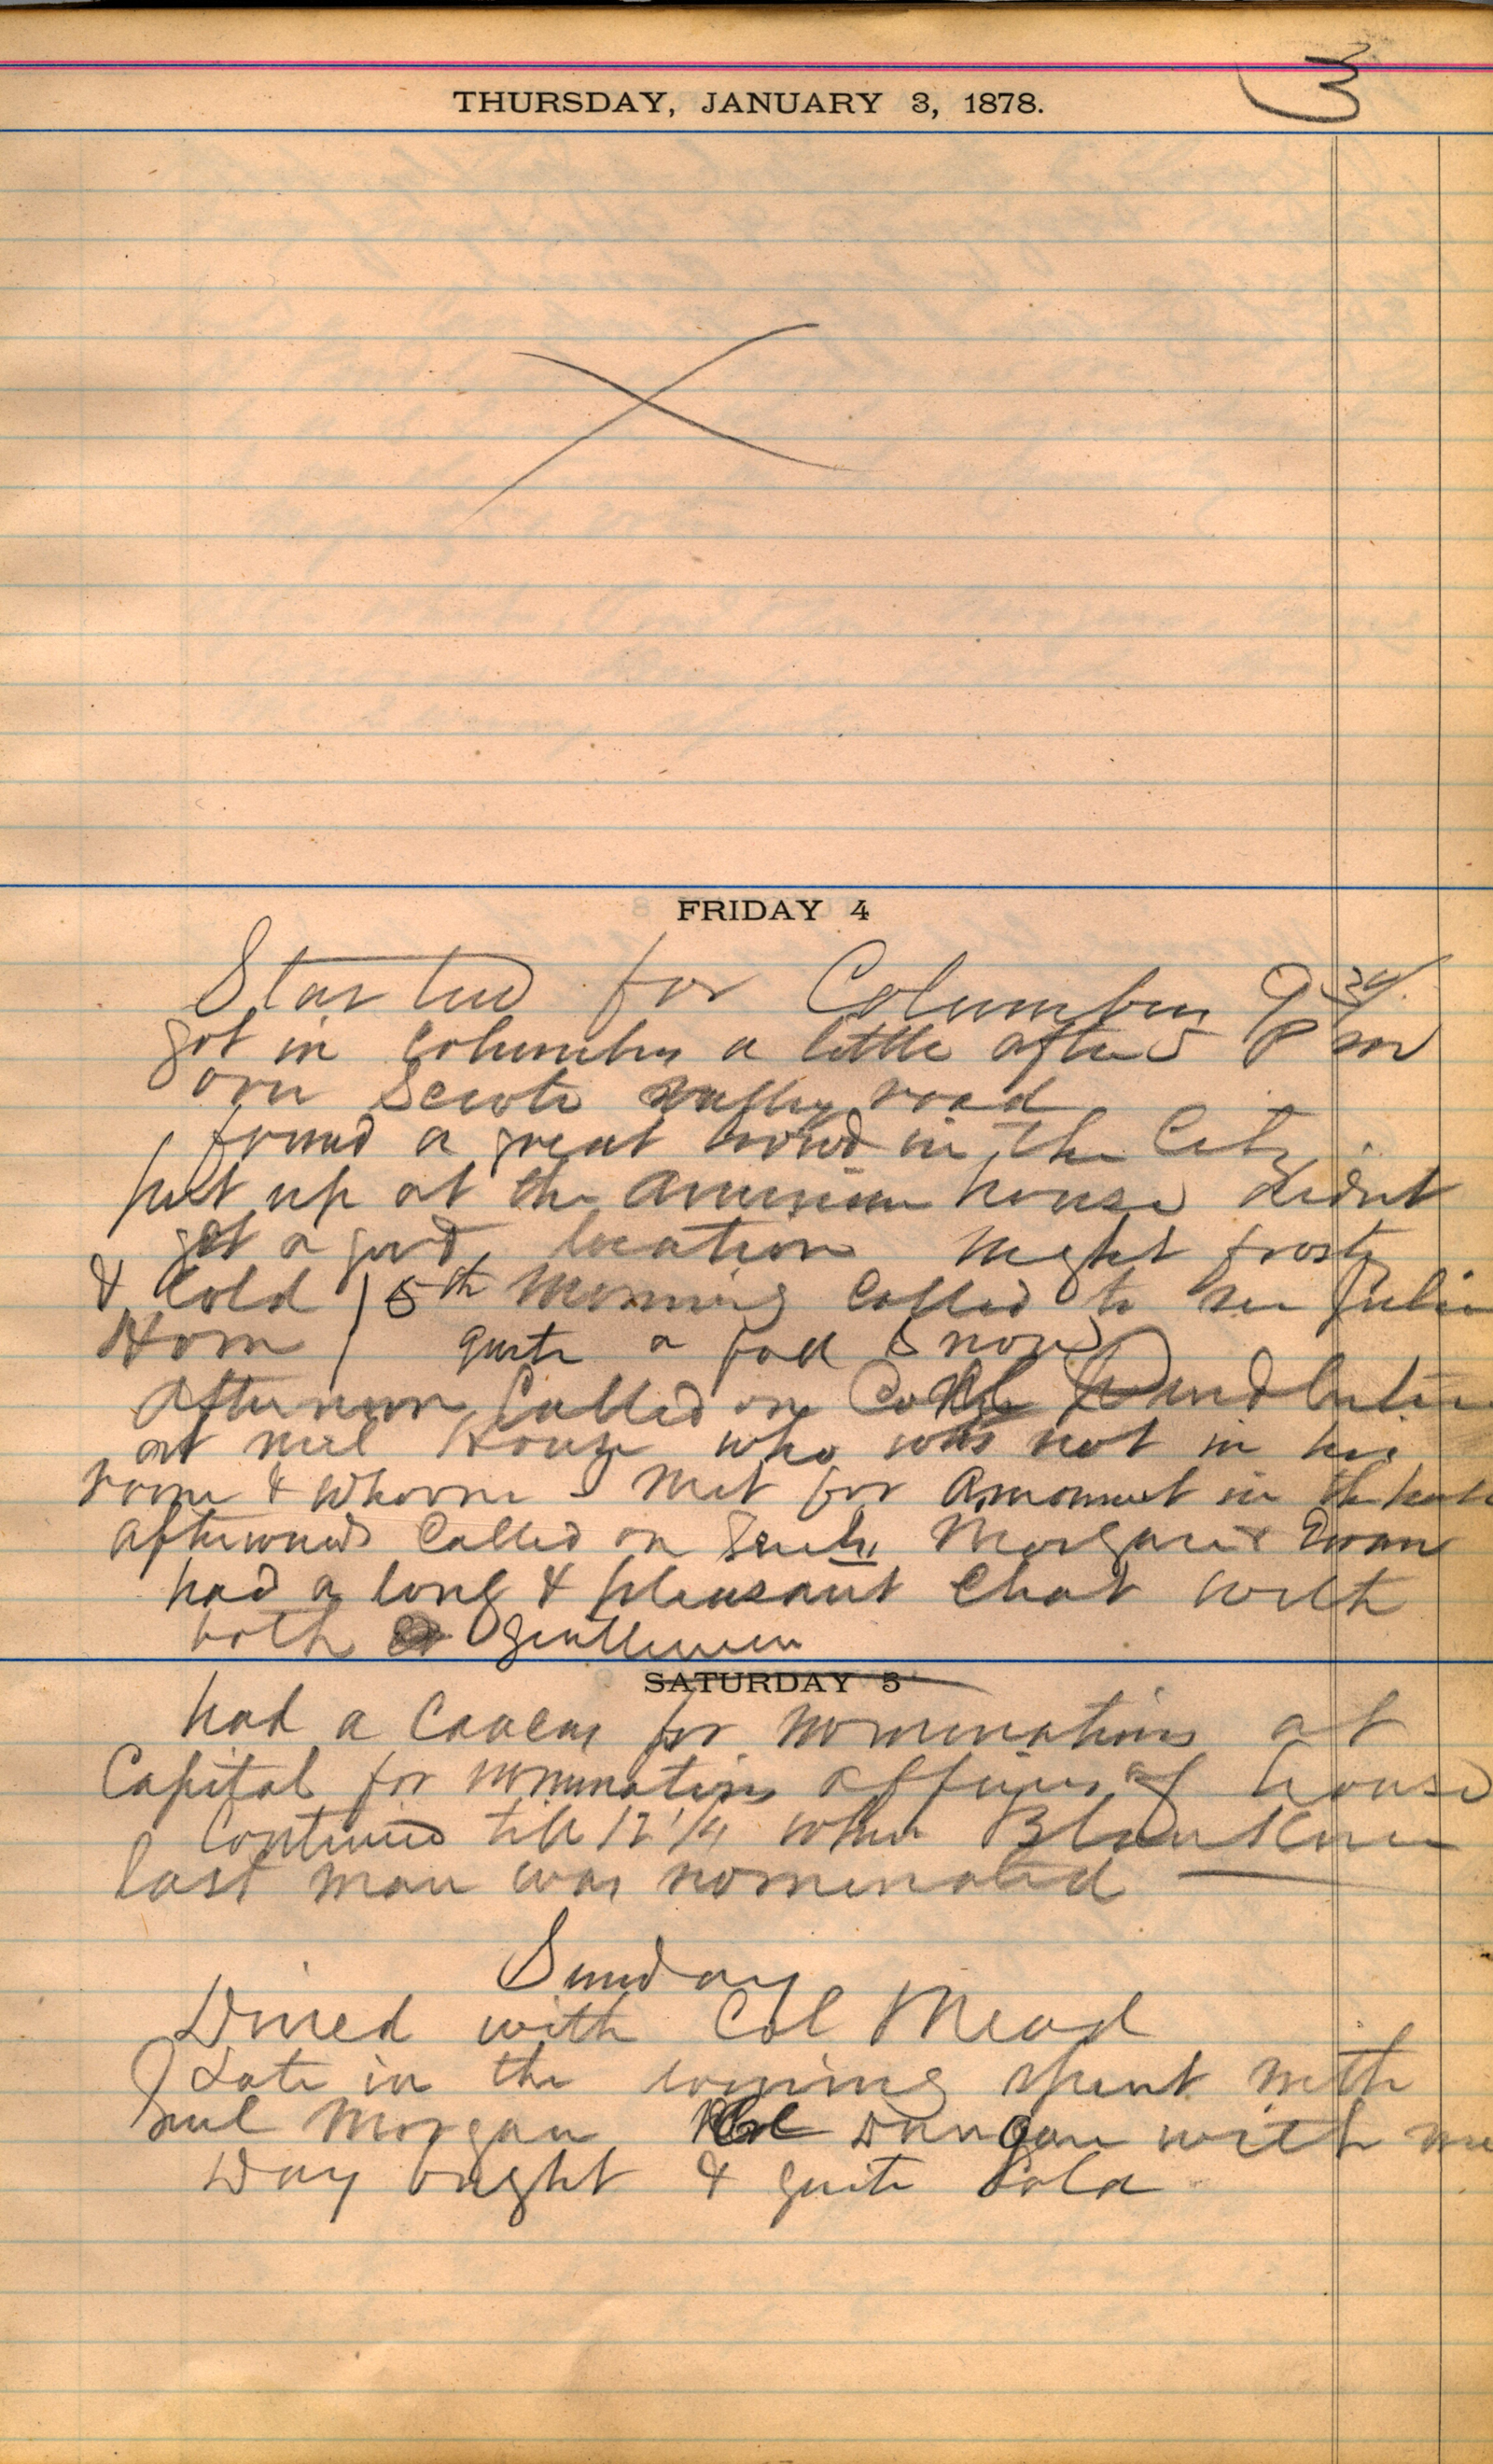 3
THURSDAY, JANUARY 3, 1878.
FRIDAY 4
Started for Columbus 9 30/
got in Columbus a little after 5 P m
over Scioto valley road
found a great crowd in the City.
put up at the American house didnt
get a good location night frosty
& Cold / 5th Morning Called to see Julia
Horn / quite a fall Snow
Afternoon Called on
at Neil House who was not in his
room & whom I met for a moment in the hall
afterwards Called on Morgan &
had a long & pleasant Chat with
both gentlemen
SATURDAY 5
had a Caucus for nominations at
Capital for nominations officers of house
Continued till 12 1/4 when
last man was nominated
Sunday
Dined with Col Mead
Late in the evening spent with
Morgan Col Duncan with me
Day bright & quite Cold